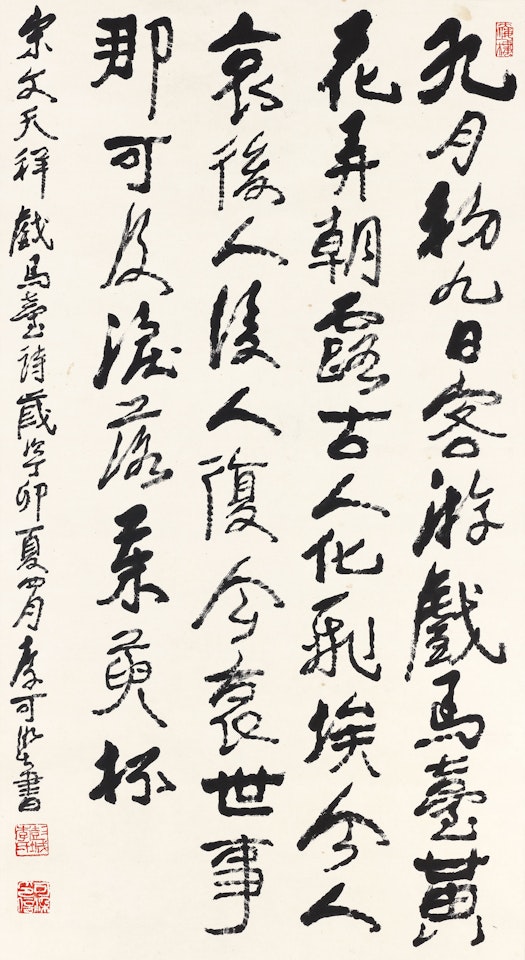 九月初九日客游戲馬臺黃
花弄朝露古人化飛埃今人
哀後人後人復今哀世事
那可及淚落茱萸杯
宋文天祥戲馬臺詩歲辛卯夏四月李可染書
彭城李氏